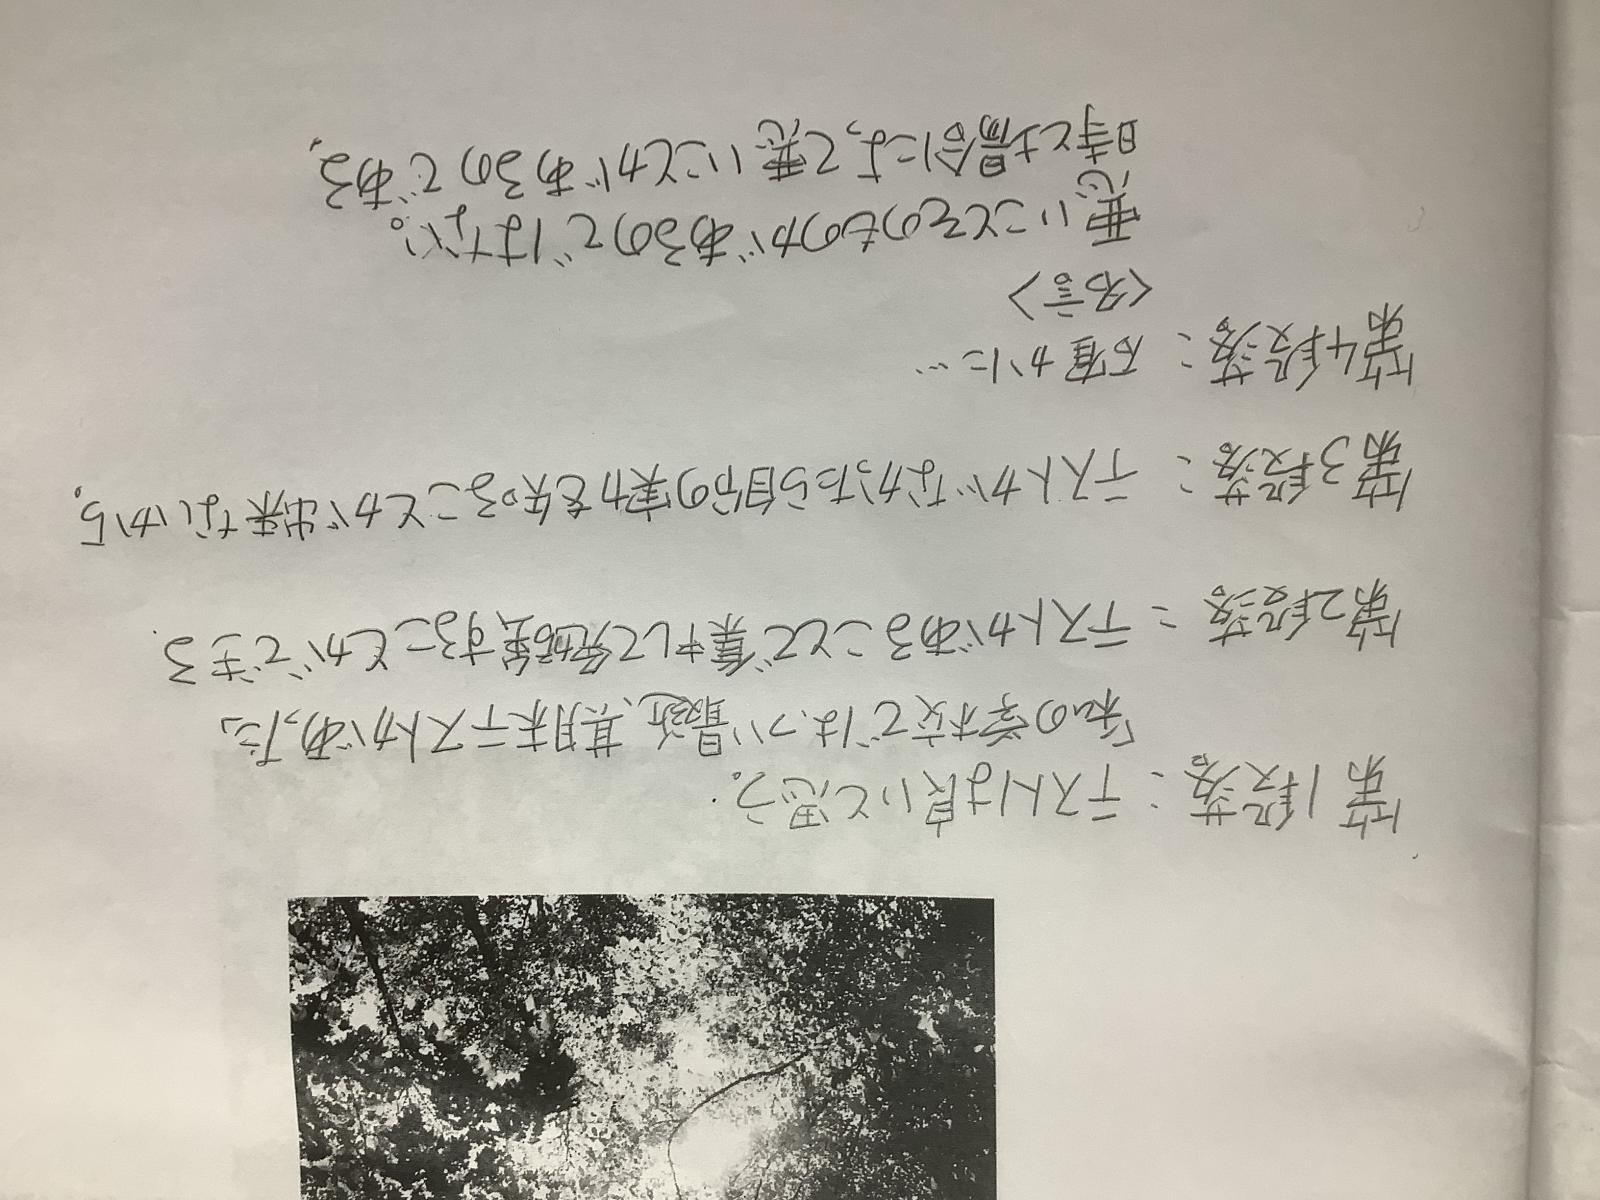 第1段落：テストは良いと思う。
「私の学校では、つい最近、期末テストがあった。」
第2段落：テストがあることで集中して勉強することができる．
第3段落：テストがなかったら自分の実力を知ることが出来ないから。
第4段落：確かに…
〈名言〉
悪いことそのものがあるのではない。
時と場合によって悪いことがあるのである。